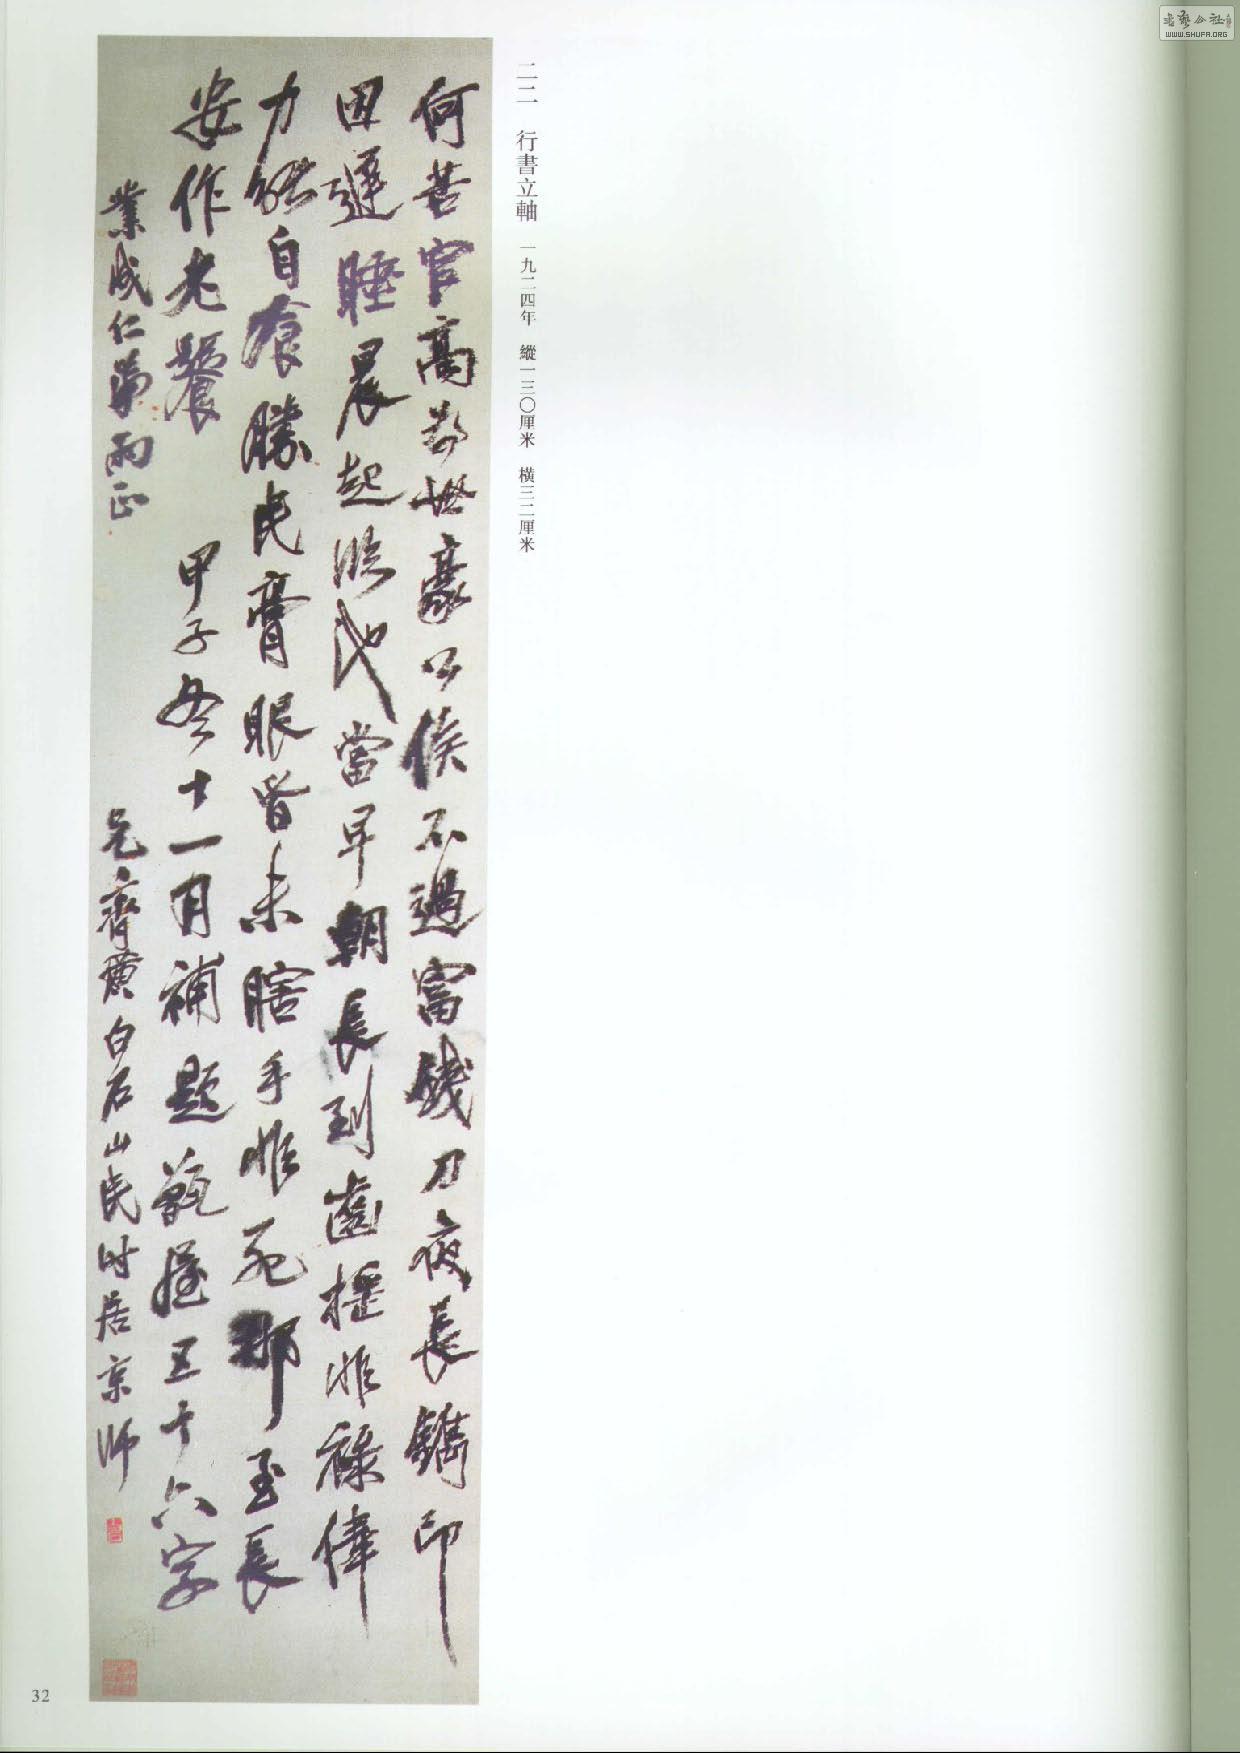 二二 行書立軸 一九二四年 縱一三〇厘米 橫三二厘米
何苦官高為世豪公侯不過富錢刀夜長鐫印
因遲睡晨起臨池當早朝長到齒搖非祿俸
力能自飡勝民膏眼昏未瞎手非死那至長
安作老饕 甲子冬十一月補題甑屋五十六字
業成仁弟兩正 兄齊璜白石山民時居京師
32
WWW.SHUFA.ORG